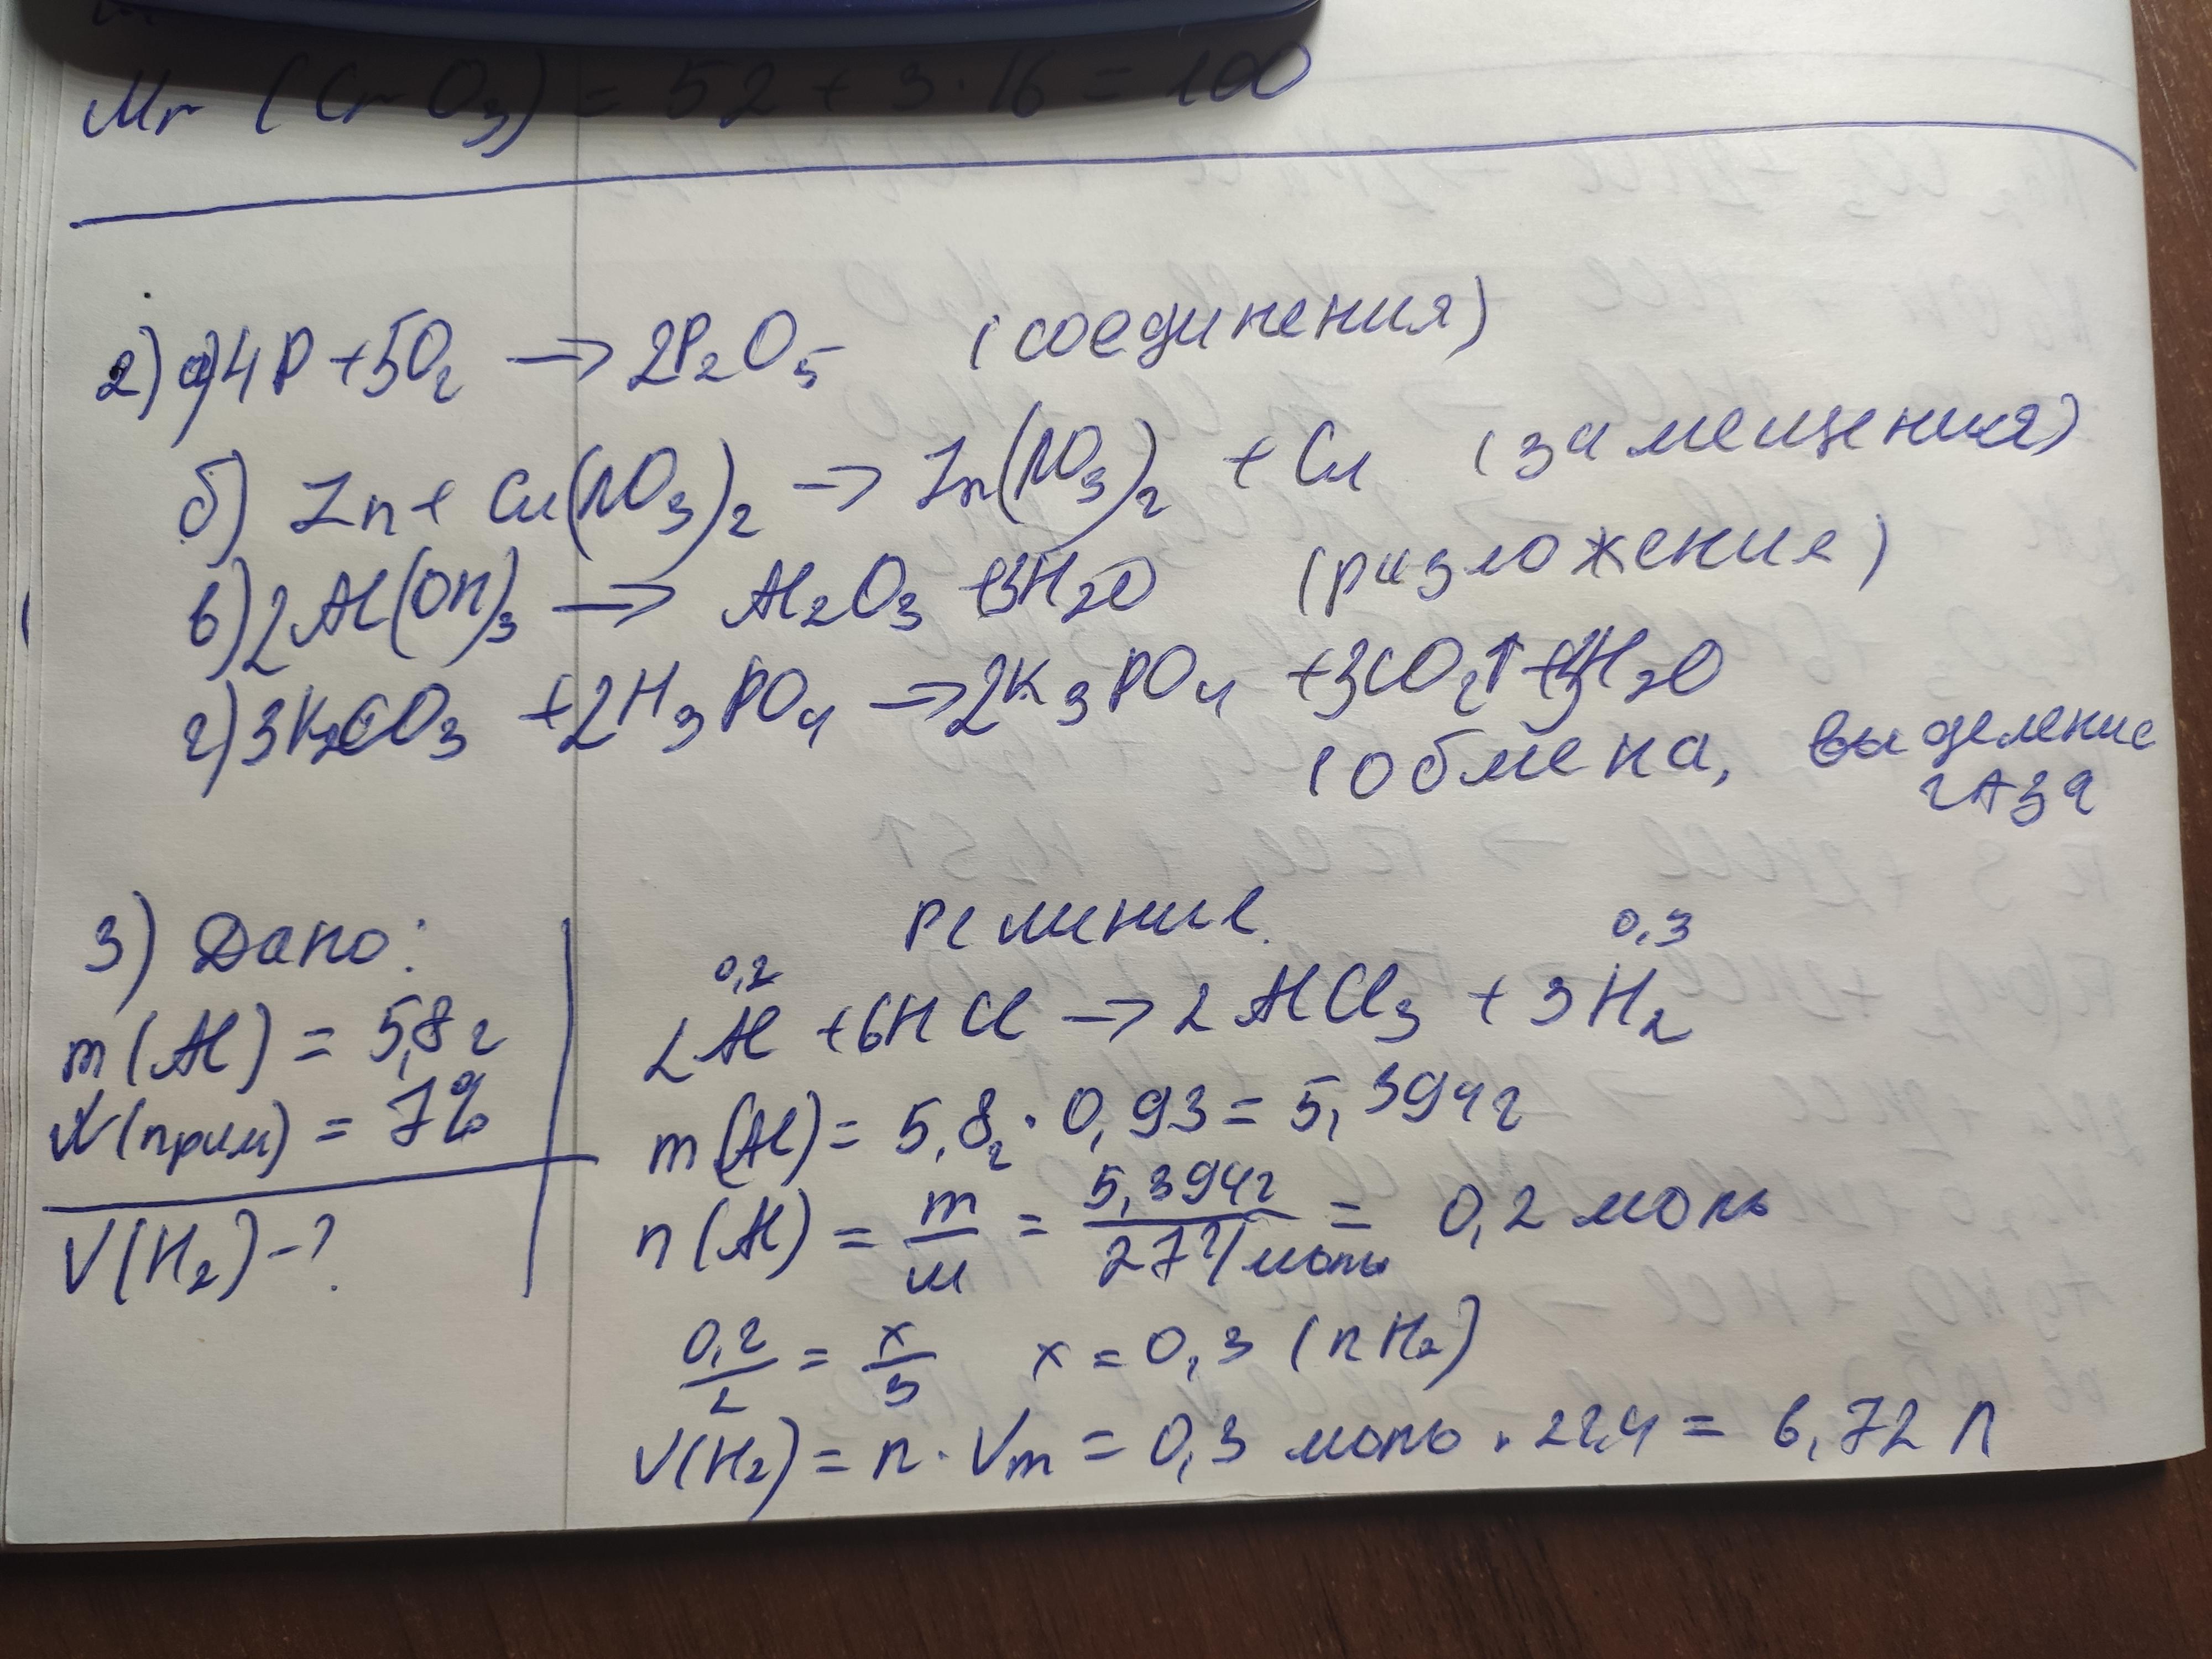 Mr (CrO₃) = 52 + 3·16 = 100
2) а) 4P + 5O₂ → 2P₂O₅ (соединения)
б) Zn + Cu(NO₃)₂ → Zn(NO₃)₂ + Cu (замещения)
в) 2Al(OH)₃ → Al₂O₃ + 3H₂O (разложение)
г) 3K₂CO₃ + 2H₃PO₄ → 2K₃PO₄ + 3CO₂↑ + 3H₂O
(обмена, выделение
газа
3) Дано:
m(Al) = 5,8 г
W(прим) = 7%
V(H₂) - ?
Решение.
0,2 0,3
2Al + 6HCl → 2AlCl₃ + 3H₂
m(Al) = 5,8г · 0,93 = 5,394г
n(Al) = m/M = 5,394г/27г/моль = 0,2 моль
0,2/2 = x/3 x = 0,3 (nH₂)
V(H₂) = n · Vm = 0,3 моль · 22,4 = 6,72 л